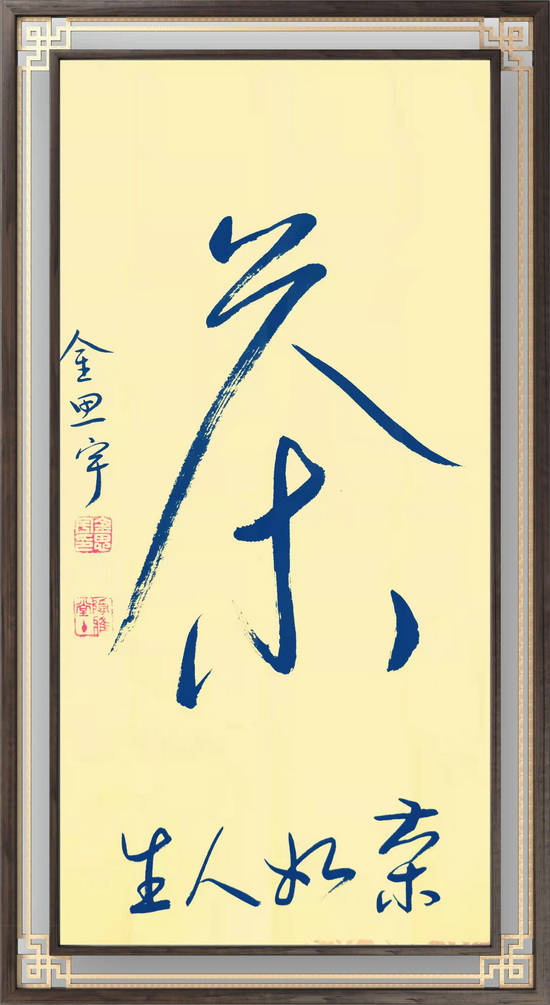 茶
茶如人生
金思宇